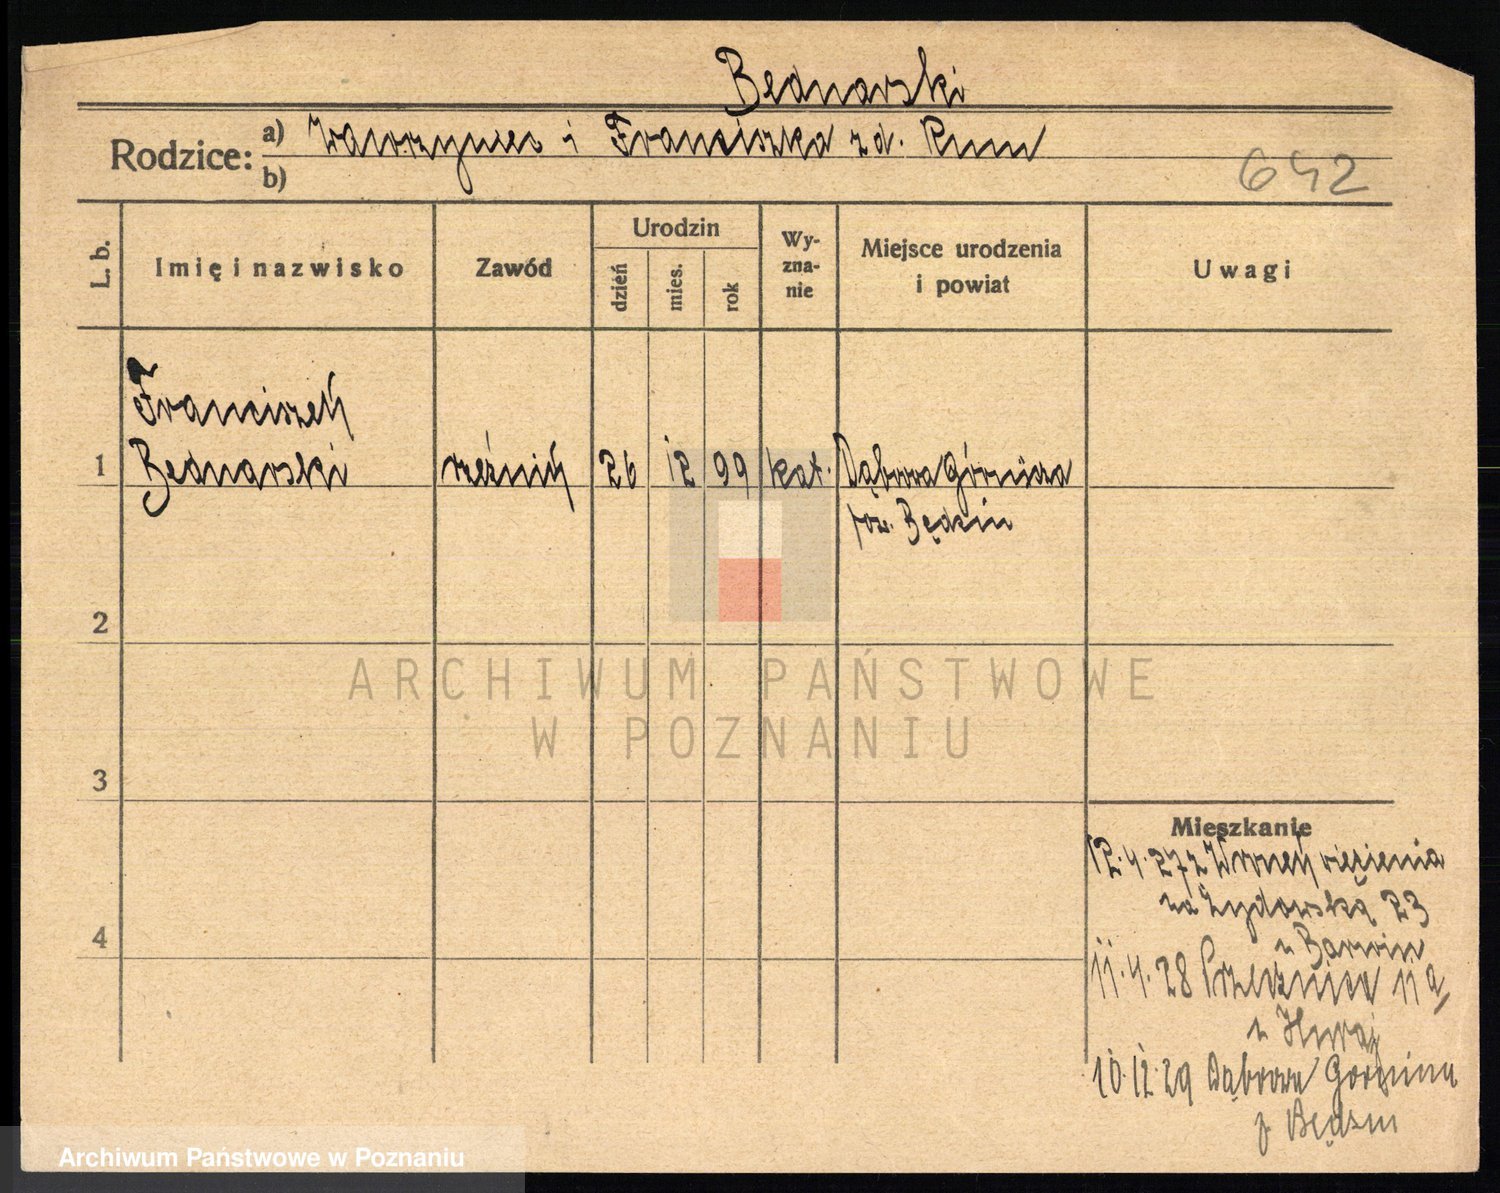 Bednarski
Rodzice: a) Wawrzyniec i Franciszka zd.
b)
642
L. b.
Imię i nazwisko
Zawód
Urodzin
dzień
mies.
rok
Wy-
zna-
nie
Miejsce urodzenia
i powiat
Uwagi
Franciszek
1 Bednarski rzeźnik 26 12 99 kat. Dąbrowa Górnicza
pow. Będzin
2
ARCHIWUM PAŃSTWOWE
W POZNANIU
3
Mieszkanie
12.4.27 z Wronek więzienia
na Żydowską 23
u
4
11.4.28 11a
u
10.12.29 Dąbrowa Górnicza
p Będzin
Archiwum Państwowe w Poznaniu